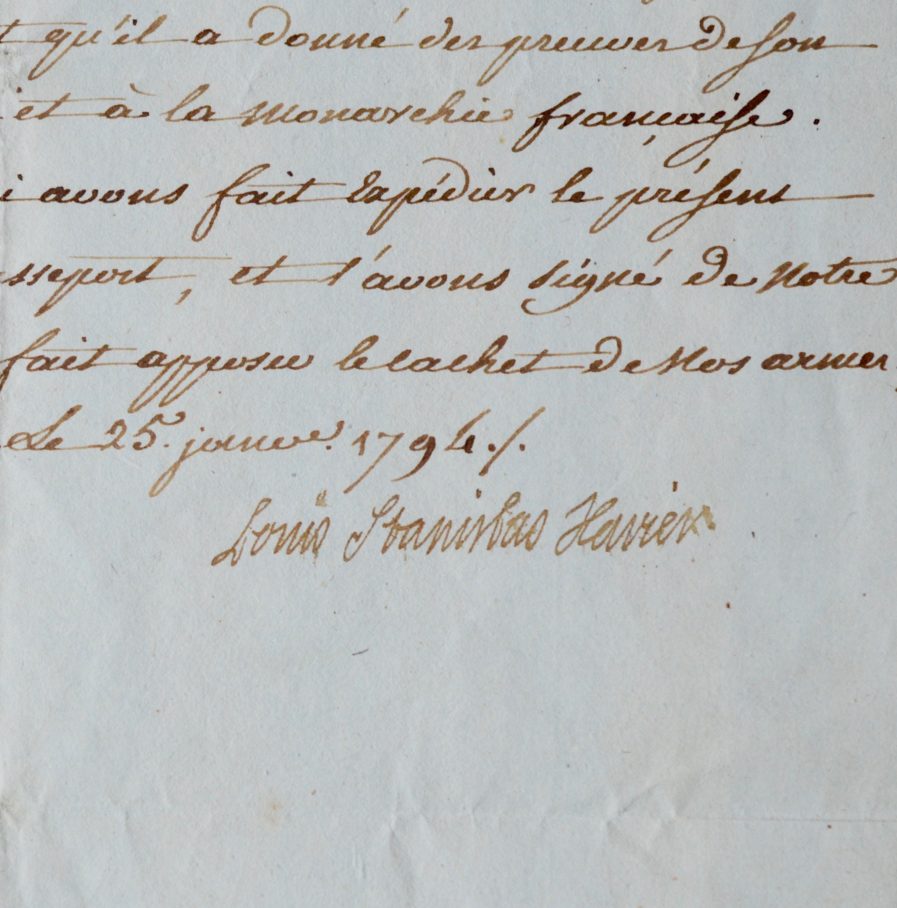 t qu'il a donné des preuves de son
et à la Monarchie française.
i avons fait Expédier le présent
sseport, et l'avons signé de Notre
fait apposer le cachet de Nos armes
Le 25. janvr. 1794./.
Louis Stanislas Xavier